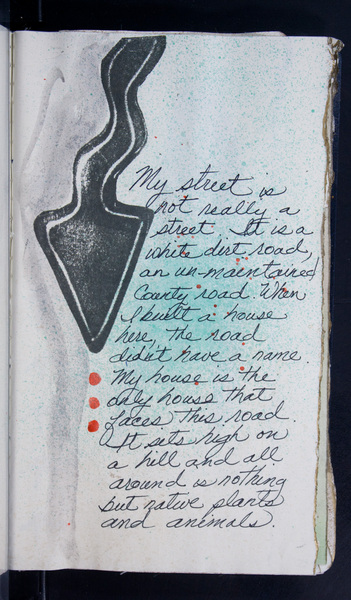 My street is
not really a
street. It is a
white dirt road,
an un-maintained
County road. When
I built a house
here, the road
didn't have a name.
My house is the
only house that
faces this road.
It sits high on
a hill and all
around is nothing
but native plants
and animals.